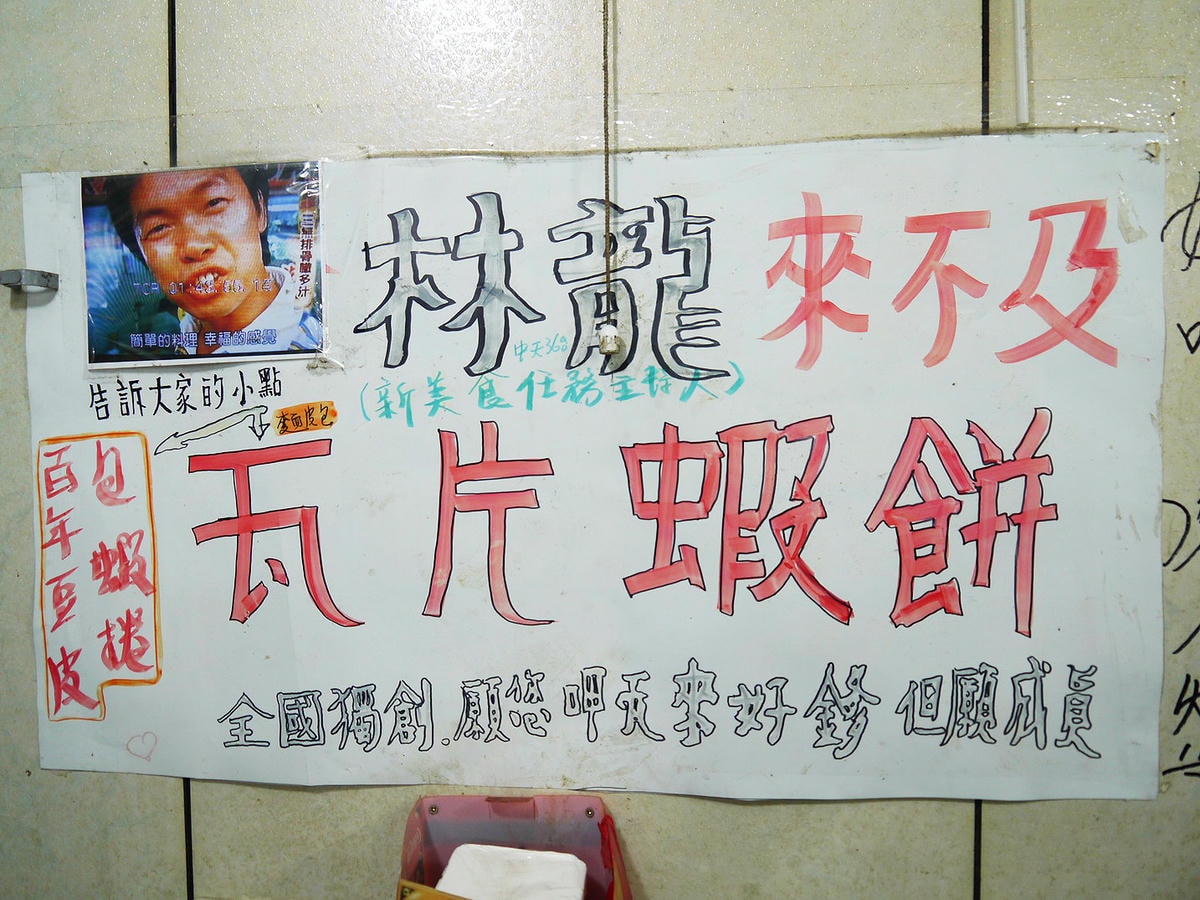 三無排骨嫩多汁
TCR 01:43:50.14
簡單的料理 幸福的感覺
林龍 來不及
中天36台
(新美食任務主持人)
告訴大家的小點
麥面皮包
瓦片蝦餅
百年豆皮
包蝦捲
全國獨創.願您呷瓦來好爹 但願成員